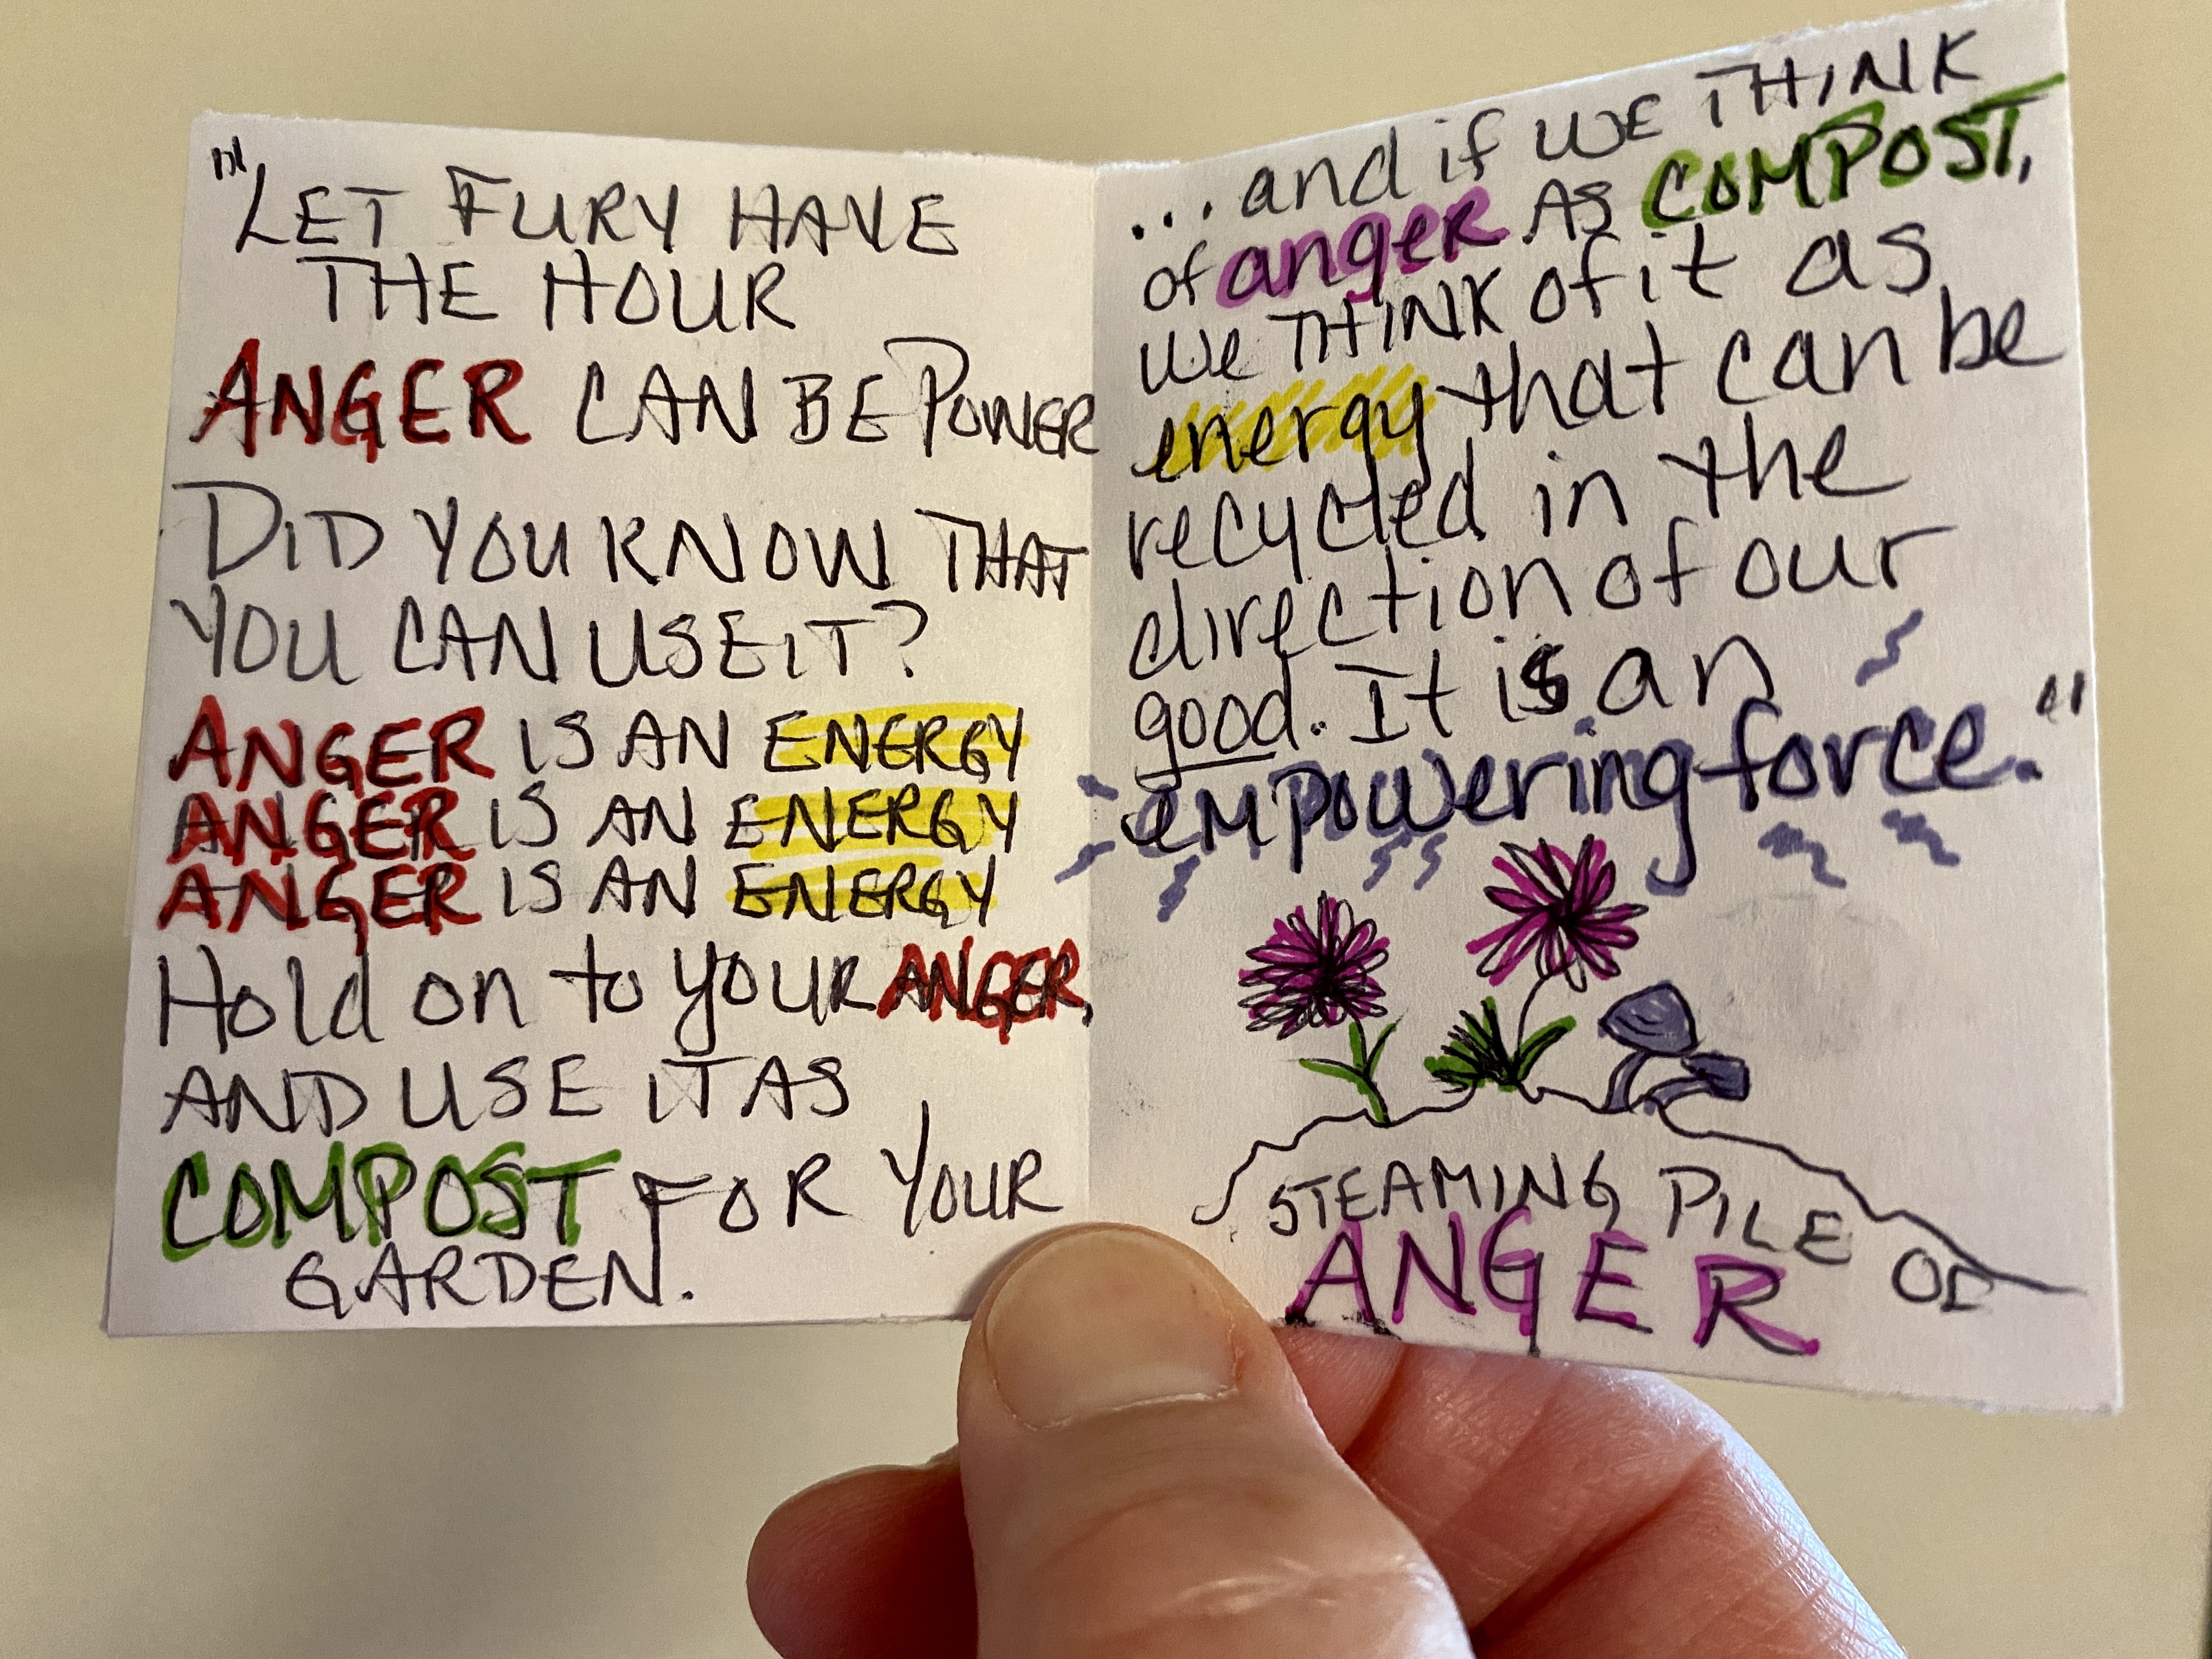 "LET FURY HAVE
THE HOUR
ANGER CAN BE POWER
DID YOU KNOW THAT
YOU CAN USE IT?
ANGER IS AN ENERGY
ANGER IS AN ENERGY
ANGER IS AN ENERGY
Hold on to your ANGER,
AND USE IT AS
COMPOST FOR YOUR
GARDEN.
...and if WE THINK
of angeR AS COMPOST,
we THINK of it as
energy that can be
recycled in the
direction of our
good. It is an
empowering force."
STEAMING PILE OF
ANGER